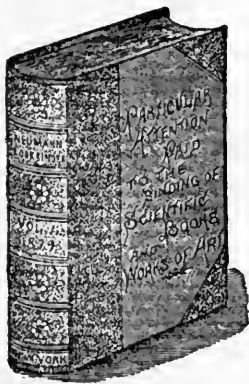 NEUMANN
BROTHERS
N. YORK
PARTICULAR
ATTENTION
PAID
TO THE
BINDING OF
SCIENTIFIC
BOOKS
AND
WORKS OF ART